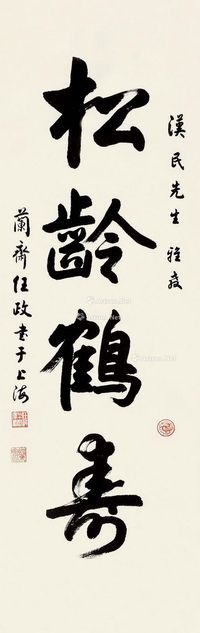 漢民先生雅教
松齡鶴壽
蘭齋任政書于上海